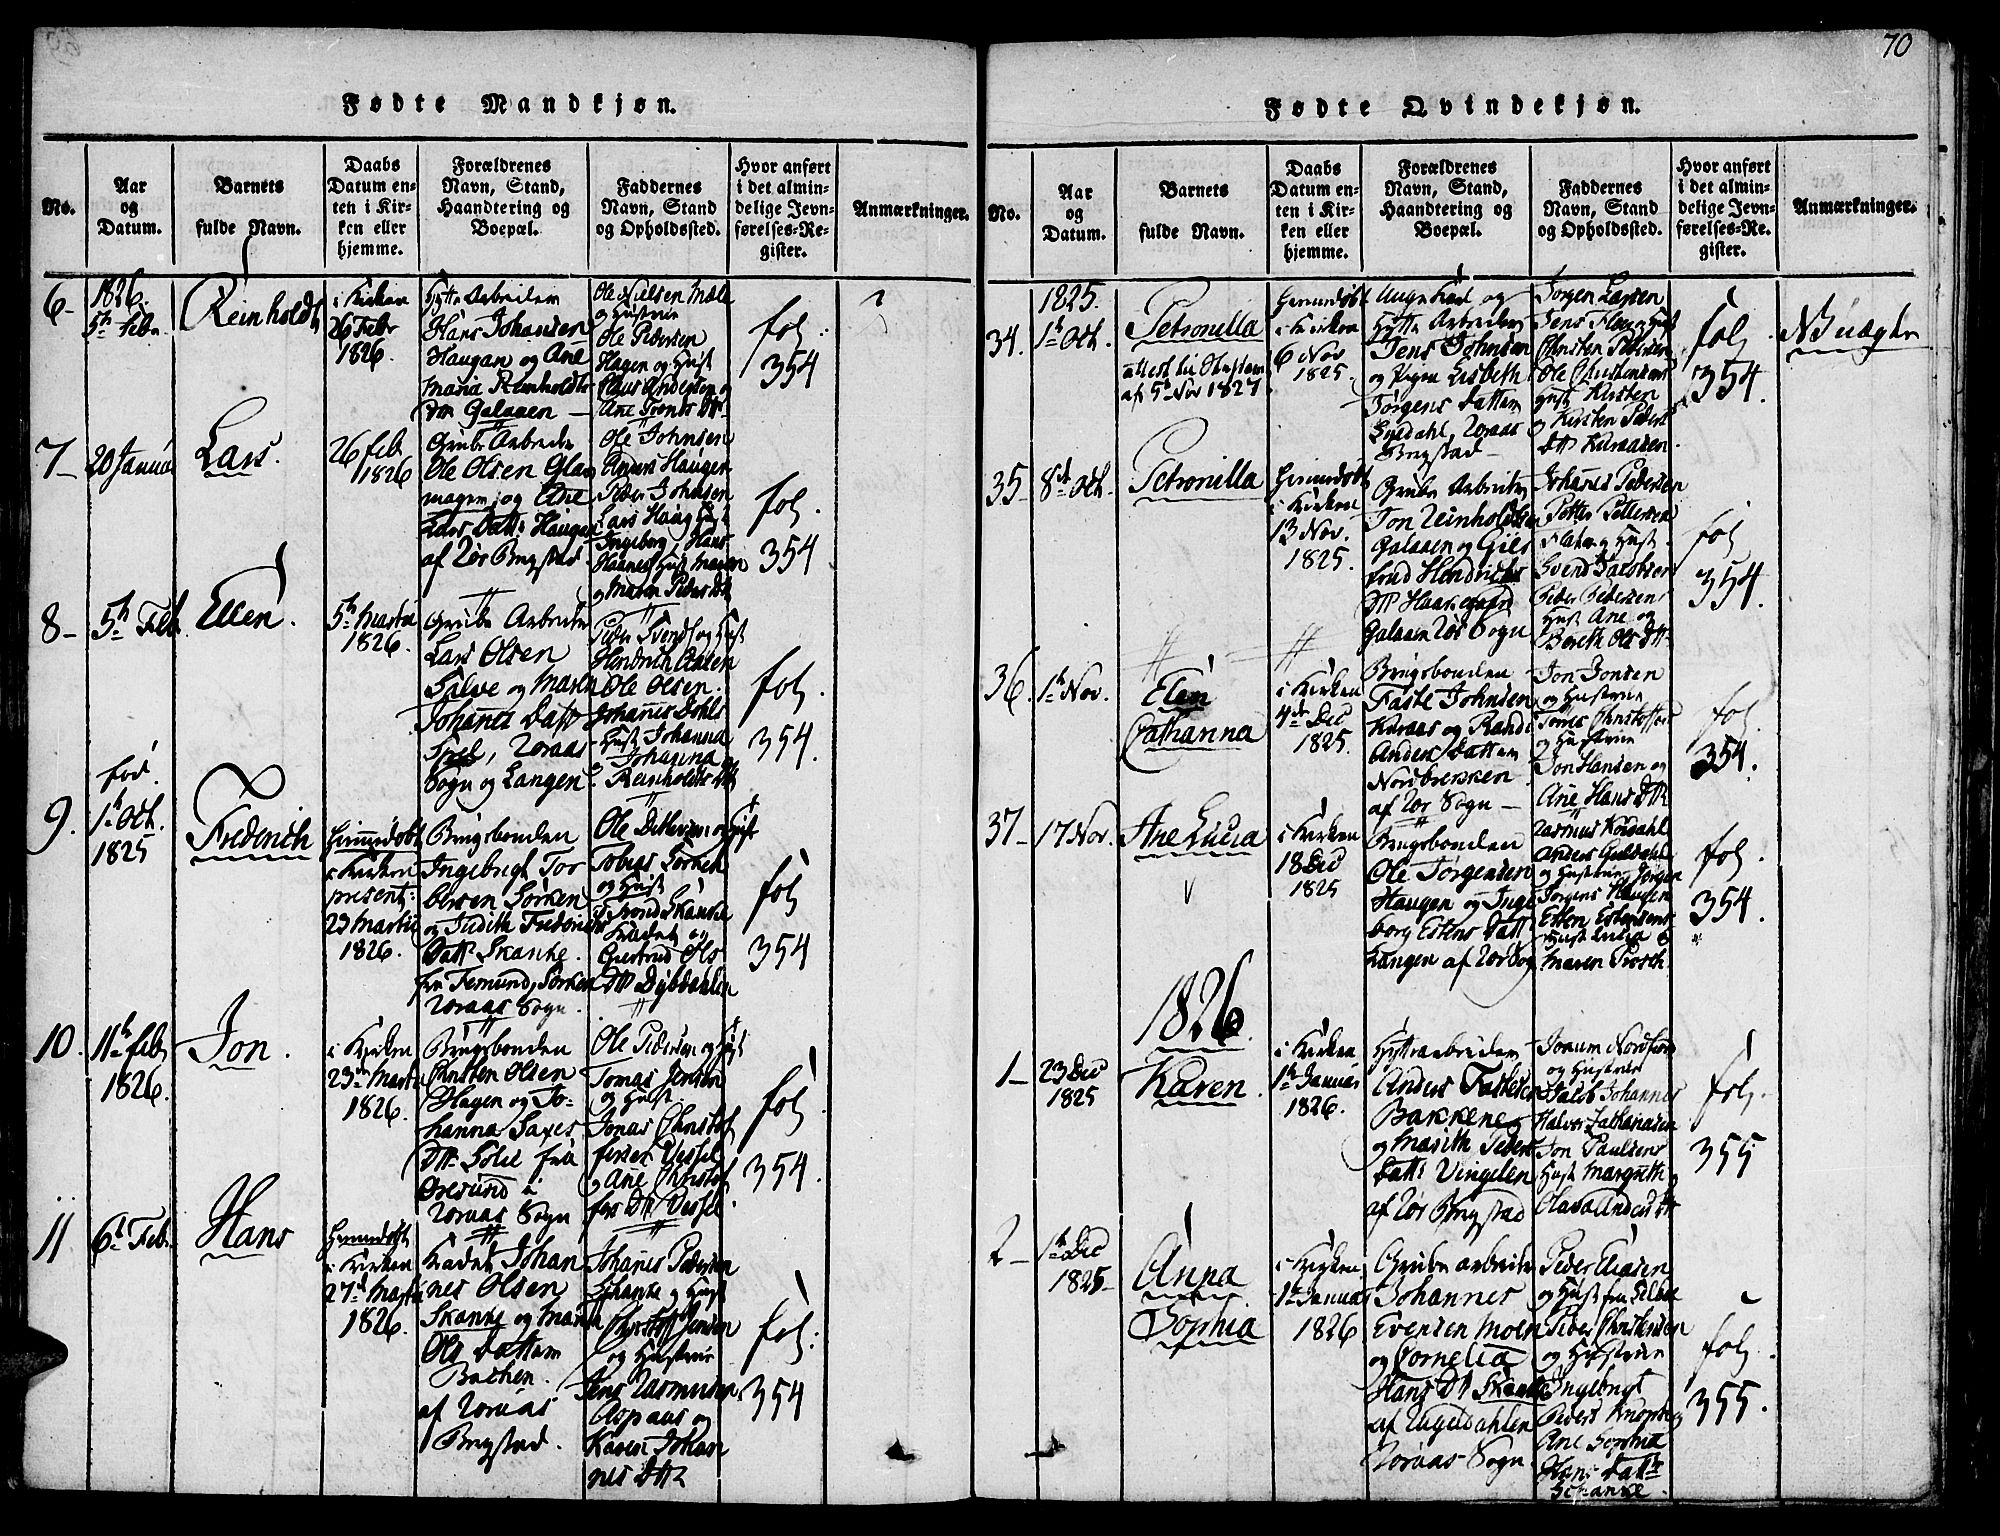 70
Fødte Mandkjøn.
No.
Aar
og
Datum.
Barnets
fulde Navn.
Daabs
Datum en-
ten i Kir-
ken eller
hjemme.
Forældrenes
Navn, Stand,
Haandtering og
Boepæl.
Faddernes
Navn, Stand
og Opholdssted.
Hvor anført
i det almin-
delige Jevn-
førelses-Re-
gister.
Anmærkninger.
6-
1826.
5te Febr.
Reinholdt
i Kirken
26 Febr
1826.
Hytte Arbeidem
Hans Johansen
Haugan og Ane
Maria Reinholdts
Dtr Galaaen
Ole Nielsen Mæle
og Hustrue
Ole Pedersen
Hagen og Hust
Claus Andersen og
Ane Tronds Dtr
fol.
354
7-
20 Januar
Lars.
26 Feb
1826
Grube Arbeider
Ole Olsen Glas
magem, og Ane
Lars Datt: Haugen
af Rør Bergstad
Ole Johnsen
Anders Haugen
Peder Johnsen
Lars Haug Hust
Ingeborg, Hans
Haanes Hust Maren
og Maren Peders Dtr
fol.
354
8-
5te Feb
Ellen.
5te Martii
1826.
Grube Arbeider
Lars Olsen
Salve og Maren
Johannes Datt
Sogn og Langen
Peder Svends og Hust
Hendrich Aasen
Ole Olsen.
Johannes Dahls
Hust Johanna
Johanna
Reinholdts Dtr
fol.
354.
9.
fød.
1te Oct.
1825
Frederich
Hiemmedøbt
i Kirken
present:
23 Martii
1826.
Brugsbonden
Ingebrigt Tor
bersen Sørken
og Judith Fredrichs
Datt Skanke.
fra Femund, Sørken
Røraas Sogn.
Ole Ditlevsen og Hust
Tobias Sørken
og Hust
Trond Skanke
Kadet og
Giertrud Ols
Dtr Dybdahlen
fol
354
10.
11te Feb
1826.
Jon.
i Kirken
23de Martii
1826.
Brugsbonden
Christen Olsen
Hagen og Jo-
hanna Saxes
Dtr. Solie fra
Øresund i
Røraas Sogn
Ole Pedersen og Hust
Tomas Jensen
og Hust.
Jonas Christof
fersen Vessel
og Ane Christof
fers Dtr Vessel
fol
354.
11
6te Feb.
Hans
Hiemmedøbt
i Kirken
27de Martii
1826.
Kadet Johan
nes Olsen
Skanke og Marith
Ols Dattem
Bachen.
af Røraas
Bergstad.
Johanes Pedersen
Schanke og Hust
Christoff Jensen
og Hustrue
Jens Rasmusen
Aspaas og
Karen Johan
nes Dtr
fol.
354
Fødte Qvindekjøn.
No.
Aar
og
Datum.
Barnets
fulde Navn.
Daabs
Datum en-
ten i Kir-
ken eller
hjemme.
Forældrenes
Navn, Stand,
Haandtering og
Boepæl.
Faddernes
Navn, Stand
og Opholdssted.
Hvor anført
i det almin-
delige Jevn-
førelses-Re-
gister.
Anmærkninger.
34.
1825.
1te Oct.
Petronilla
af 5te Nov 1827
Hiemmedøbt
i Kirken
6 Nov
1825.
Unge Karl og
Hytte Arbeidem
Jens Johnsen
og Pigen Lisbeth
Jørgens Dattem
Lysdahl, Røraas
Bergstad
Jørgen Larsen
Jens Floer og Hust
Christen Pedersen
Ole Christensens
Hust Kirsten
og Kirsten Peders
Dtr Kuraasen
fol.
354.
NB uægte
35-
8de Oct.
Petronilla
Hiemmedøbt
i Kirken
13 Nov.
1825.
Grube Arbeider
Jon Reinholdsen
Galaaen og Gils
trud Hendrichs
Dtr Haarsgaard
Galaaen Rørs Sogn
Johanes Pedersen
Petter Pettersen
Hust
Svend Jacobsen
Peder Pedersens
Hust Ane og
Bereth Ols Dtr
fol
354.
36.
1te Nov.
Elen
Cathanna
i Kirken
4de Dec
1825.
Brugsbonden
Faste Johnsen
Kuraas og Randi
Anders Dattem
Nordbrekken
af Rør Sogn
Jon Jonsen
og Hustrue
Tomes Christoffer
og Hustrue
Jon Hansen og
Ane Hans Dtr
fol.
354.
37-
17 Nov.
Ane Lucia
i Kirken
18 Dec
1825
Brugsbonden
Ole Jørgensen
Haugen og Inge
borg Estens Datt
Langen af Rør Sog
Rasmus Korsdahl
Anders Guldahl
og Hustrue, Jørgen
Jørgens Haugen
Esten Estensens
Hust Lucia og
Maren Prosth.
fol
354.
1826.
1-
23 Dec
1825
Karen.
i Kirken
1te Januar
1826.
Hyttearbeidem
Anders Fastesen
Bakkene
og Marith Peders
Datt: Vingelen
af Rør Bergstad
Joraum
og Hustrue
Jacob Johannes
Halvor Zachariasen
Jon Paulsens
Hust Margreth og
Olava Anders Dtr
fol.
355
2-
1te Dec
1825
Anna
Sophia
i Kirken
1te Januar
1826
Grube arbeider
Johannes
Evensen Moen
og Cornelia
Hans Dtr Skanke
af Rugeldahlen
Røraas Sogn.
Peder Eliasen
og Hust fra Selboe
Peder Christensen
og Hustrue
Ingebrigt
Peders Knopberg
Ane Sophia
Hans Datt
Schanke
fol.
355.